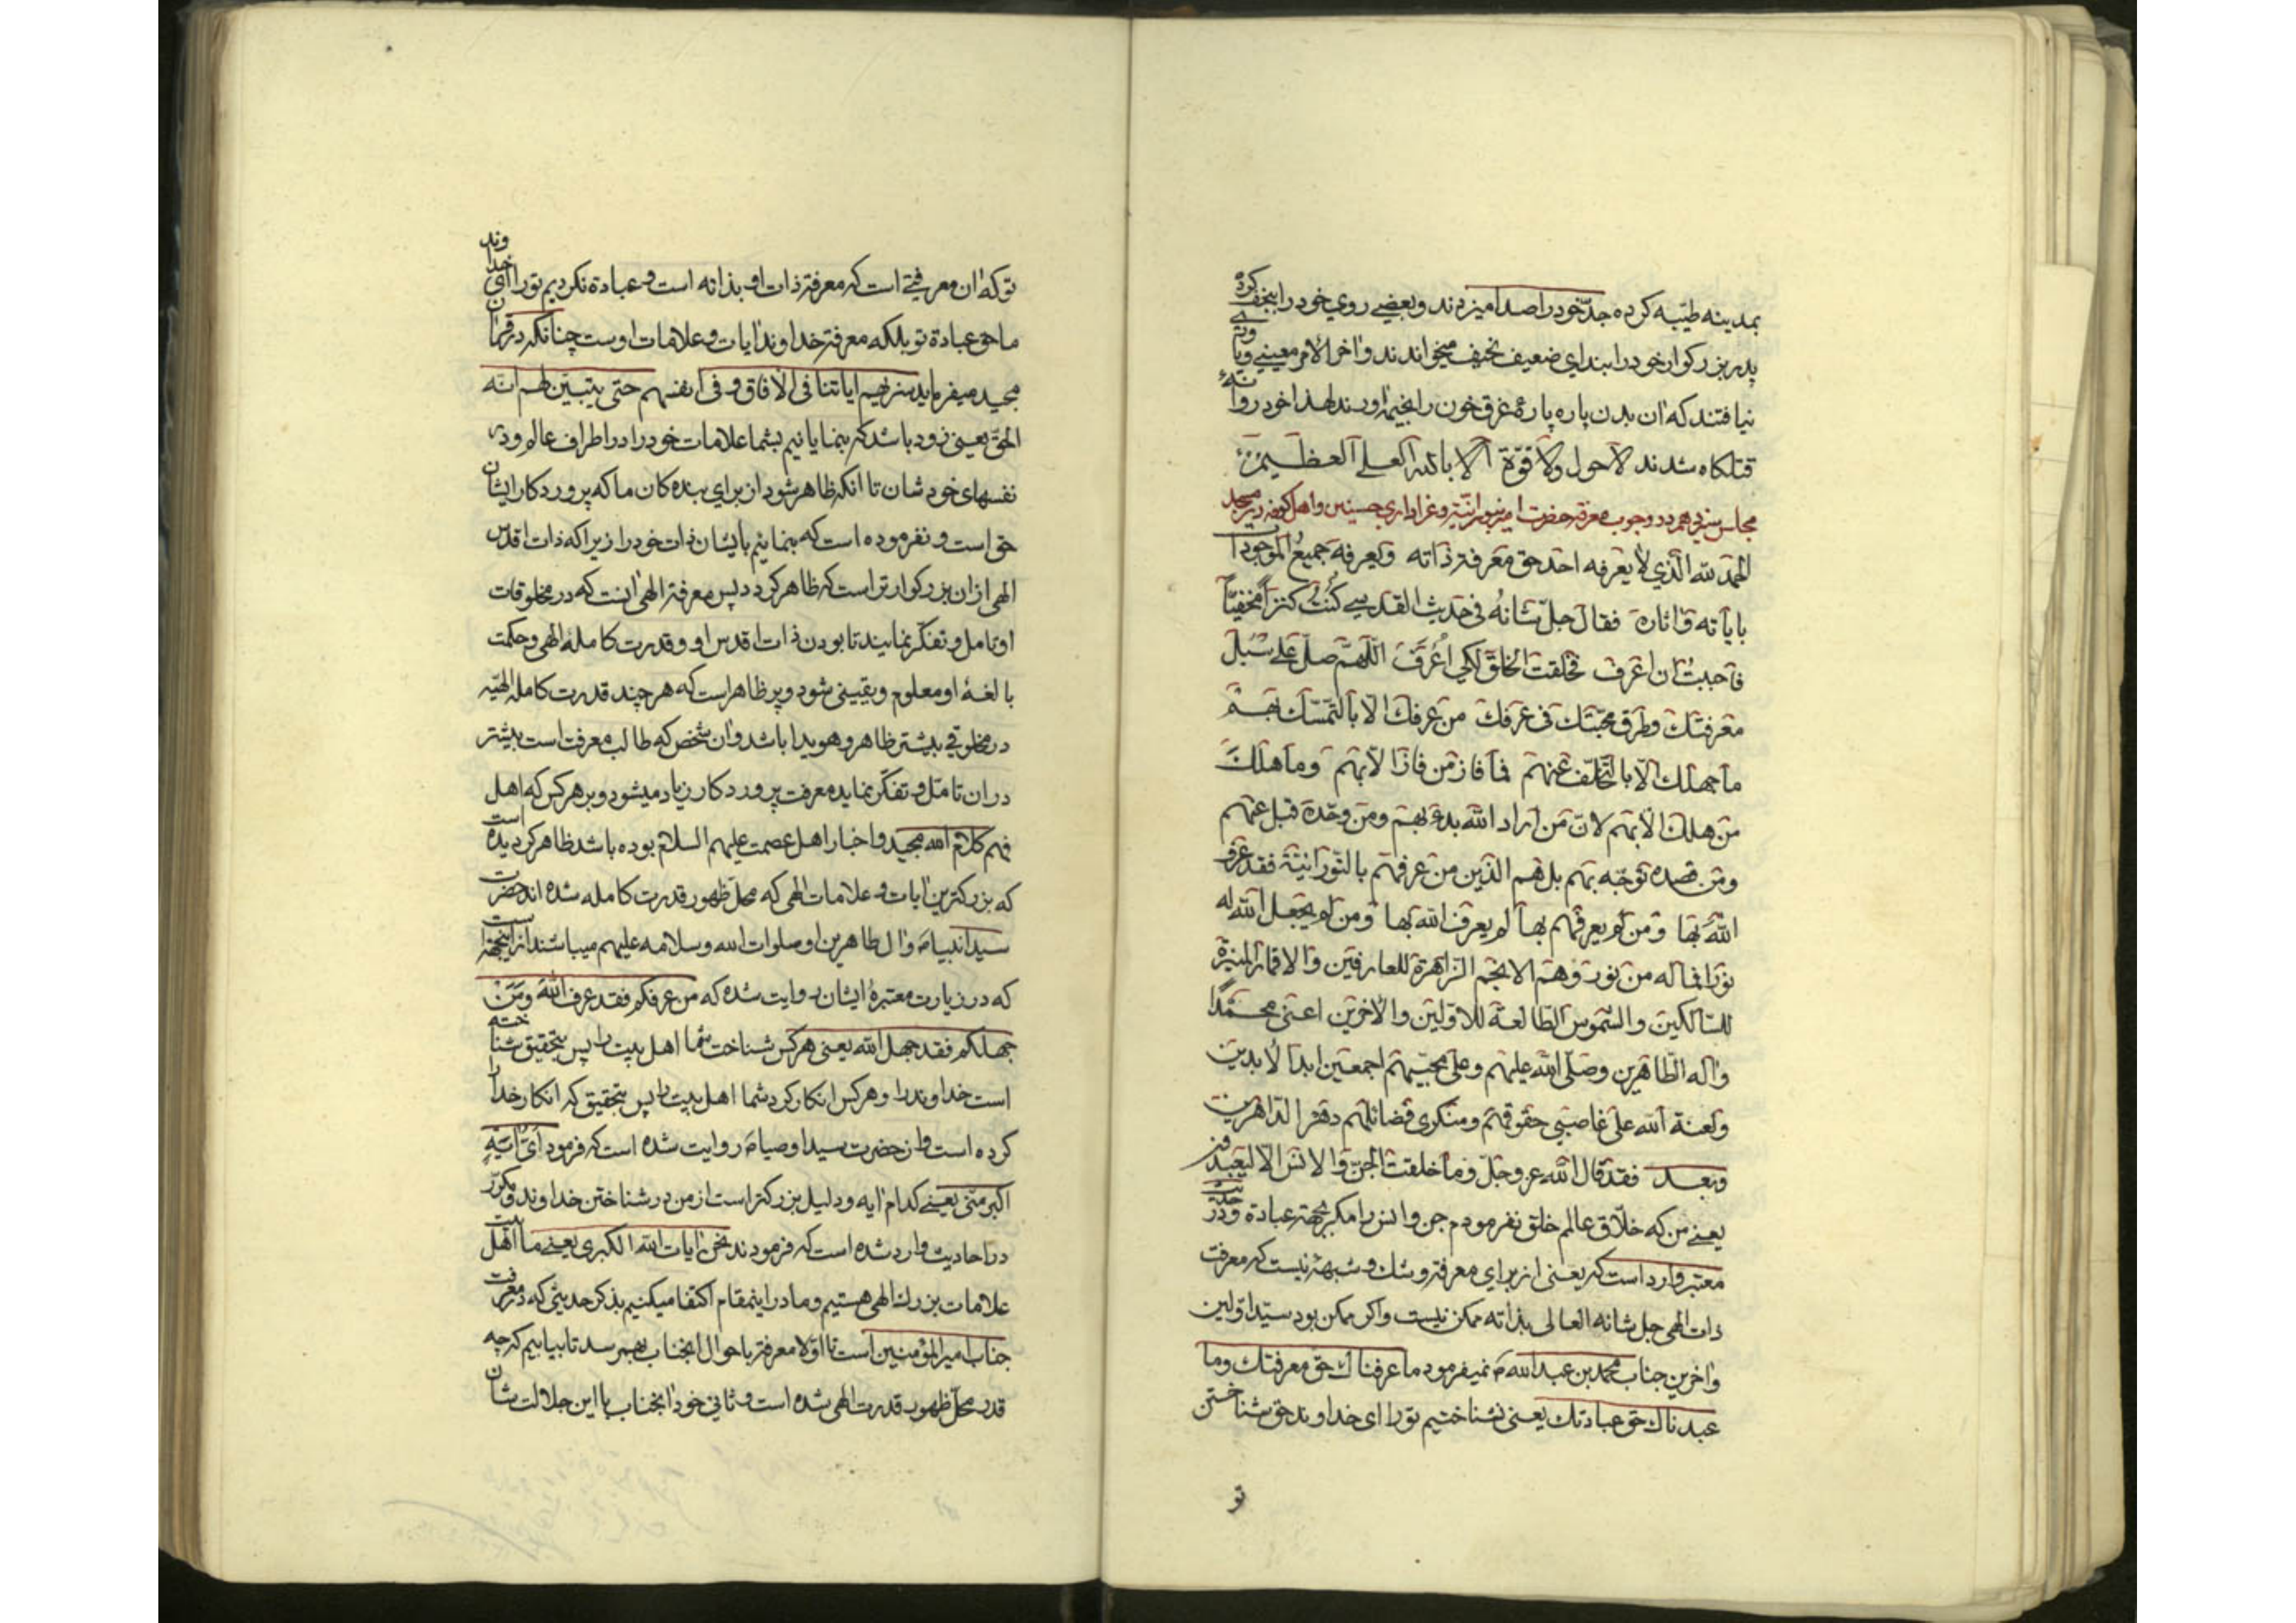 بمدینه طیّبه کرده جدّ خود را صدا میزدند و بعضی روی خود را بنجف کرده
پدر بزرکوار خود را بندای ضعیف نحیف میخواندند و اخر الامر معینی و یاوری
نیافتند که ان بدن پاره پاره غرق خون را بخیمه اورند لهذا خود روانهٔ
قتلکاه شدند لاحول ولا قوّة الّا بالله العلی العظیم
مجلس سیزدهم در وجوب معرفة حضرت امیر بنورانیّت و عزاداری حسنین و اهل کوفه در مسجد
الحمد لله الّذی لا یعرفه احد حق معرفة ذاته ویعرفه جمیع الموجودات
بایاته واثاره فقال جلّ شانه فی حدیث القدسی کنت کنزا مخفیّاً
فاحببت ان اعرف فخلقت الخلق لکی اعرف اللّهم صلّ علی سُبل
معرفتك وطرق محبّتك فی عرفك من عرفك الّا بالتمسّك بهم
ما جهلك الّا بالتخلّف عنهم فما فاز من فاز الّا بهم وما هلك
من هلك الّا بهم لانّ من اراد الله بدء بهم ومن وحّده قبل عنهم
ومن قصده توجّه بهم بل هم الذین من عرفهم بالنّورانیّة فقد عرف
الله بها ومن لم یعرفهم بها لم یعرف الله بها ومن لم یجعل الله له
نورا فما له من نور وهم الانجم الزاهرة للعارفین والاقمار المنیرة
للسّالکین والشموس الطالعة للاوّلین والاخرین اعنی محمّدا
واله الطّاهرین وصلّی الله علیهم وعلی محبّیهم اجمعین ابد الابدین
ولعنة الله علی غاصبی حقوقهم ومنکری فضائلهم دهر الداهرین
وبعد فقد قال الله عز وجلّ وما خلقت الجنّ والانس الّا لیعبدون
یعنی من که خلّاق عالم خلق نفرمودم جن و انس را مکر بجهة عبادة و در حدیث
معتبر وارد است که یعنی از برای معرفة و شك و شبهه نیست که معرفت
ذات الهی جل شانه العالی بذاته ممکن نیست و اکر ممکن بود سیّد اوّلین
و اخرین جناب محمد بن عبد الله ص نمیفرمود ما عرفناك حق معرفتك وما
عبدناك حق عبادتك یعنی نشناختیم تو را ای خداوند حق شناختن
تو
تو که ان معرفتی است که معرفة ذات او بذاته است و عبادة نکردیم تو را ای خداوند
ما حق عبادة تو بلکه معرفة خداوند ایات و علامات اوست چنانکه در قران
مجید میفرماید سنریهم ایاتنا فی الافاق و فی انفسهم حتی یتبیّن لهم انّه
الحقّ یعنی زود باشد که بنمایانیم بشما علامات خود را در اطراف عالم و در
نفسهای خودشان تا انکه ظاهر شود از برای بنده کان ما که پروردکار ایشان
حق است و نفرموده است که بنمایم بایشان ذات خود را زیرا که ذات اقدس
الهی از ان بزرکوارتر است که ظاهر کردد پس معرفة الهی اینست که در مخلوقات
او تامل و تفکّر نمایند تا بودن ذات اقدس او و قدرت کامله الهی و حکمت
بالغهٔ او معلوم و یقینی شود و پر ظاهر است که هر چند قدرت کامله الهیّه
در مخلوقی بیشتر ظاهر و هویدا باشد و ان شخص که طالب معرفت است بیشتر
در ان تامّل و تفکّر نماید معرفت پروردکار زیاد میشود و بر هر کس که اهل
فهم کلام الله مجید و اخبار اهل عصمت علیهم السلام بوده باشد ظاهر کردیده است
که بزرکترین ایات و علامات الهی که محل ظهور قدرت کامله شده اند حضرت
سید انبیاء و ال طاهرین او صلوات الله و سلامه علیهم میباشند از اینجهة است
که در زیارت معتبرهٔ ایشان روایت شده که من عرفکم فقد عرف الله ومن
جهلکم فقد جهل الله یعنی هر کس شناخت شما اهل بیت را پس بتحقیق شناخته
است خداوند را و هر کس انکار کرد شما اهل بیت را پس بتحقیق که انکار خدا را
کرده است و از حضرت سید اوصیاء روایت شده است که فرمود ایّ ایة
اکبر منّی یعنی کدام ایه و دلیل بزرکتر است از من در شناختن خداوند و مکرّر
در احادیث وارد شده است که فرمودند نحن ایات الله الکبری یعنی ما اهل بیت
علامات بزرك الهی هستیم و ما در اینمقام اکتفا میکنیم بذکر حدیثی که در معرفت
جناب امیر المؤمنین است تا اوّلا معرفة باحوال انجناب بهم رسد تا بیابیم که چه
قدر محلّ ظهور قدرت الهی شده است و ثانی خود انجناب با این جلالت شان